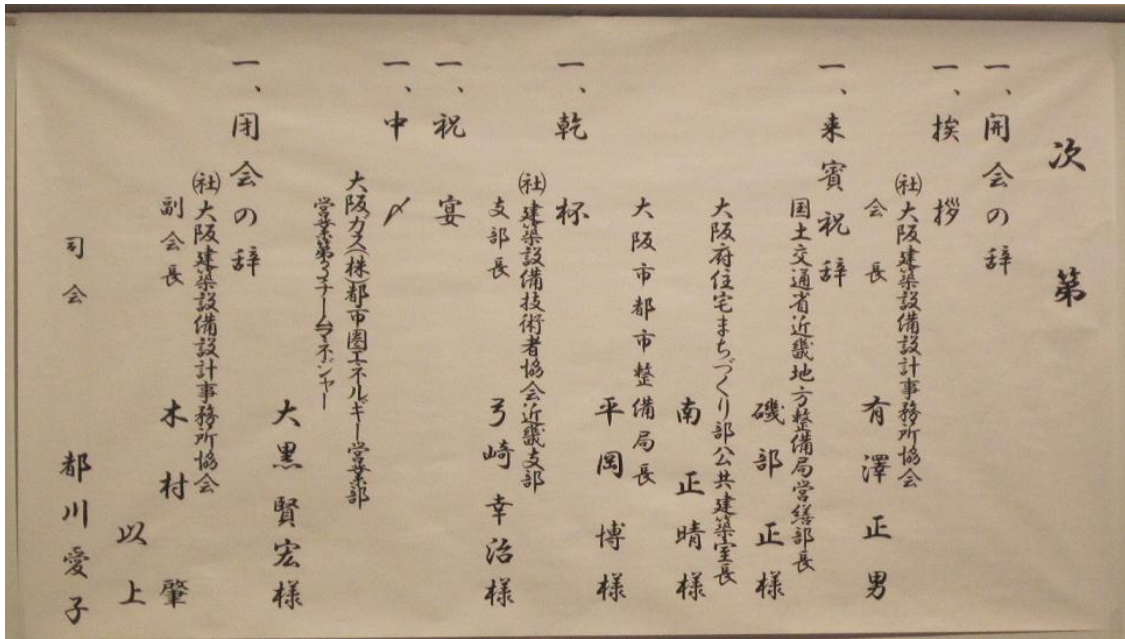 次第
一、開会の辞
一、挨拶
㈳大阪建築設備設計事務所協会
会長 有澤正男
一、来賓祝辞
国土交通省近畿地方整備局営繕部長
磯部正様
大阪府住宅まちづくり部公共建築室長
南正晴様
大阪市都市整備局長
平岡博様
一、乾杯
㈳建築設備技術者協会近畿支部
支部長 弓崎幸治様
一、祝宴
一、中〆
大阪ガス(株)都市圏エネルギー営業部
営業第3チームマネジャー
大黒賢宏様
一、閉会の辞
㈳大阪建築設備設計事務所協会
副会長 木村肇
以上
司会 都川愛子